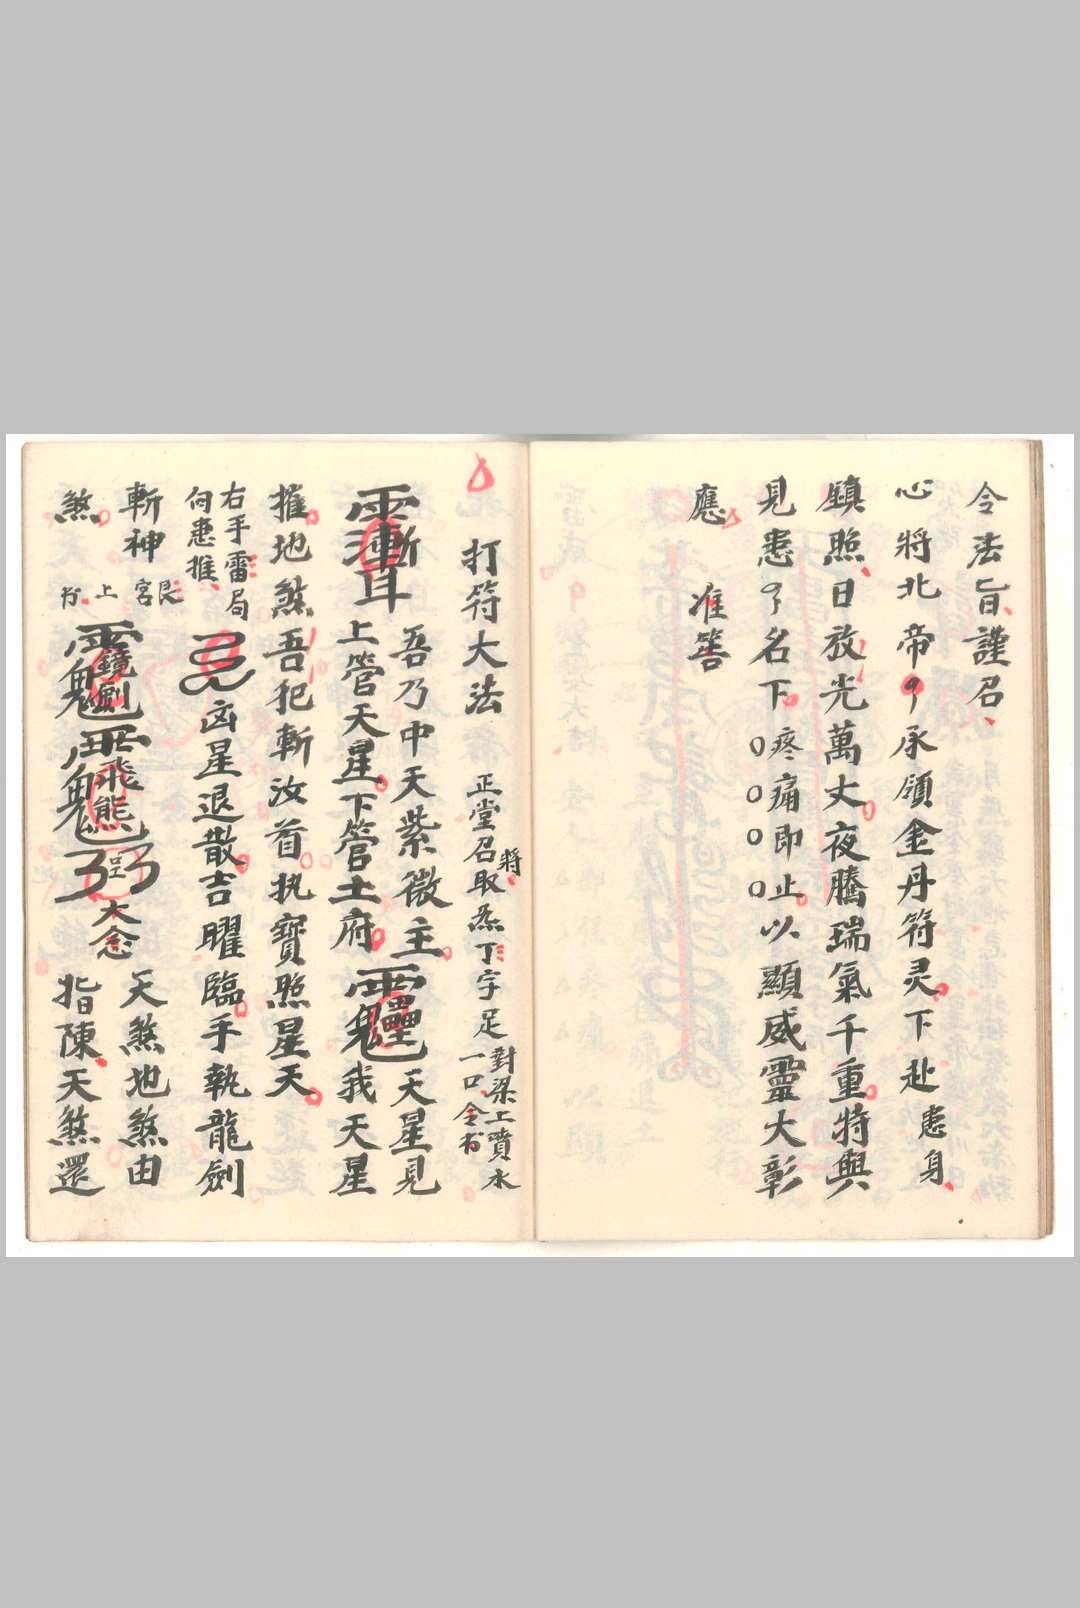 令法旨謹召
心將北帝承領金丹符灵下赴患身
鎮照日放光萬丈夜騰瑞氣千重特與
見患名下疼痛即止以顯威靈大彰
〇〇〇〇
應 准筶
打符大法 正堂召將取炁丁字足
對梁上噴水
一口令书
吾乃中天紫微主 天星見
上管天星下管土府 我天星
摧地煞吾犯斬汝首执寶照星天
右手雷局
向患推
凶星退散吉曜臨手執龍劍
斬神 艮宮上书 天煞地煞由
煞 大念 指陳天煞還